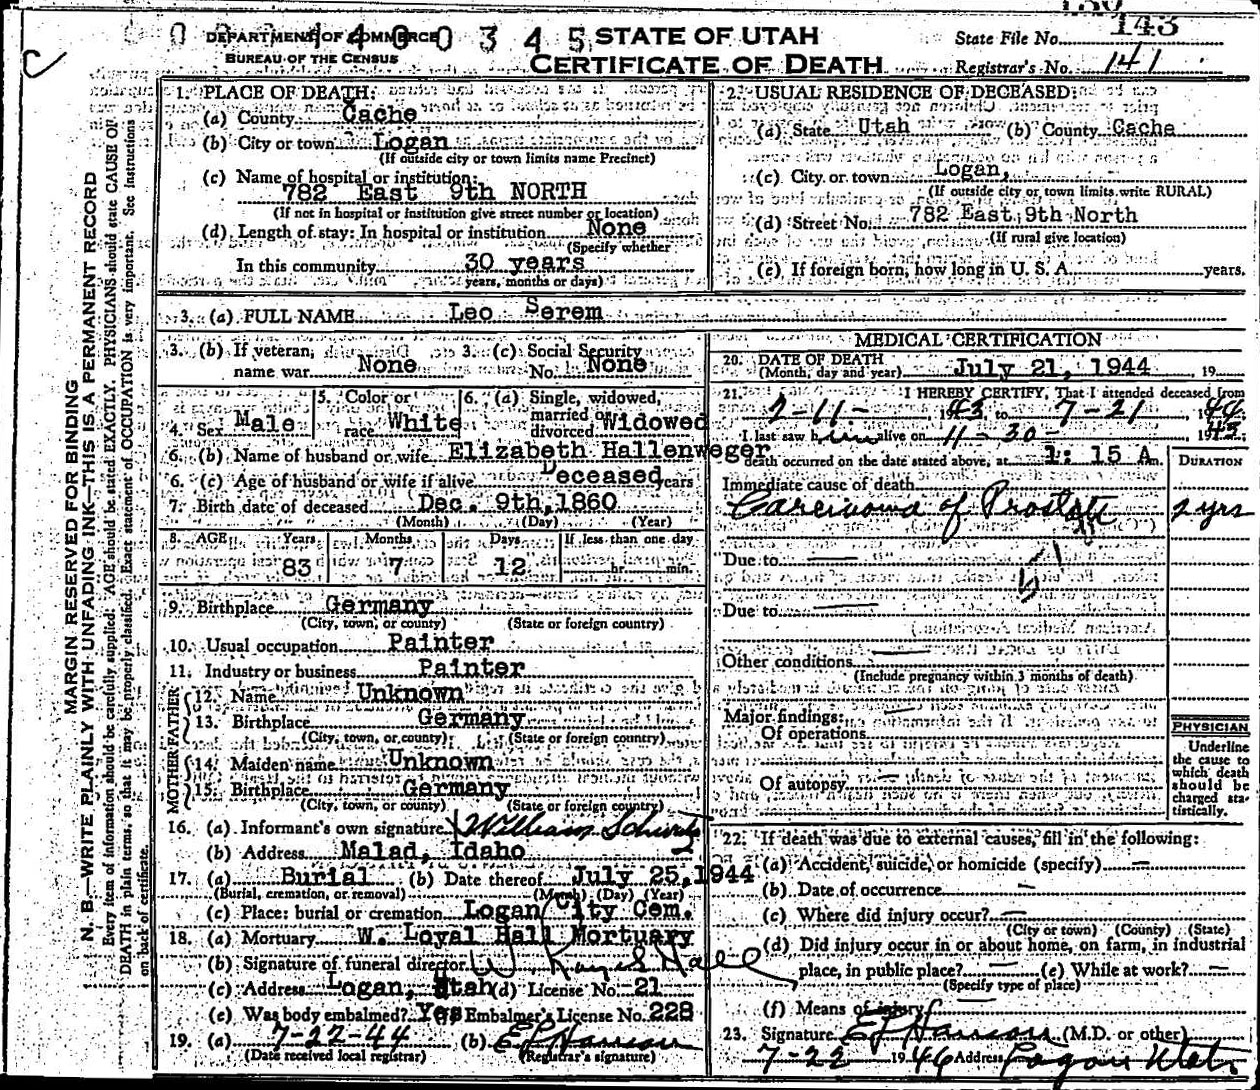 143
0 1 4 0 0 3 4 5
DEPARTMENT OF COMMERCE
BUREAU OF THE CENSUS
STATE OF UTAH
CERTIFICATE OF DEATH
State File No.
Registrar's No. 141
MARGIN RESERVED FOR BINDING
N. B.—WRITE PLAINLY WITH UNFADING INK—THIS IS A PERMANENT RECORD
Every item of information should be carefully supplied. AGE should be stated EXACTLY. PHYSICIANS should state CAUSE OF
DEATH in plain terms, so that it may be properly classified. Exact statement of OCCUPATION is very important. See instructions
on back of certificate.
1. PLACE OF DEATH:
(a) County Cache
(b) City or town Logan
(If outside city or town limits name Precinct)
(c) Name of hospital or institution:
782 East 9th NORTH
(If not in hospital or institution give street number or location)
(d) Length of stay: In hospital or institution None
(Specify whether
In this community 30 years
years, months or days)
2. USUAL RESIDENCE OF DECEASED:
(a) State Utah (b) County Cache
(c) City or town Logan,
(If outside city or town limits write RURAL)
(d) Street No. 782 East 9th North
(If rural give location)
(e) If foreign born, how long in U. S. A. years.
3. (a) FULL NAME Leo Serem
3. (b) If veteran, name war None
3. (c) Social Security No. None
4. Sex Male
5. Color or race White
6. (a) Single, widowed, married or divorced Widowed
6. (b) Name of husband or wife Elizabeth Hallenweger
6. (c) Age of husband or wife if alive Deceased years
7. Birth date of deceased Dec. 9th, 1860
(Month) (Day) (Year)
8. AGE Years Months Days If less than one day
83 7 12 hr. min.
9. Birthplace Germany
(City, town, or county) (State or foreign country)
10. Usual occupation Painter
11. Industry or business Painter
FATHER
12. Name Unknown
13. Birthplace Germany
(City, town, or county) (State or foreign country)
MOTHER
14. Maiden name Unknown
15. Birthplace Germany
(City, town, or county) (State or foreign country)
16. (a) Informant's own signature William
(b) Address Malad, Idaho
17. (a) Burial (b) Date thereof July 25, 1944
(Burial, cremation, or removal) (Month) (Day) (Year)
(c) Place: burial or cremation Logan City Cem.
18. (a) Mortuary W. Loyal Hall Mortuary
(b) Signature of funeral director W Hall
(c) Address Logan, Utah (d) License No. 21
(e) Was body embalmed? Yes Embalmer's License No. 228
19. (a) 7-22-44 (b) E L Hanson
(Date received local registrar) (Registrar's signature)
MEDICAL CERTIFICATION
20. DATE OF DEATH
(Month, day and year) July 21, 1944, 19
21. I HEREBY CERTIFY, That I attended deceased from
2-11- 1943 to 7-21, 1944
I last saw him alive on 11-30-, 1943;
death occurred on the date stated above, at 1:15 A m.
DURATION
Immediate cause of death
Carcinoma of Prostate 2 yrs
Due to —
Due to —
Other conditions —
(Include pregnancy within 3 months of death)
Major findings:
Of operations —
Of autopsy —
PHYSICIAN
Underline
the cause to
which death
should be
charged sta-
tistically.
22. If death was due to external causes, fill in the following:
(a) Accident, suicide, or homicide (specify) —
(b) Date of occurrence —
(c) Where did injury occur? —
(City or town) (County) (State)
(d) Did injury occur in or about home, on farm, in industrial
place, in public place? — (e) While at work? —
(Specify type of place)
(f) Means of injury —
23. Signature E L Hanson (M.D. or other)
7-22 1946 Address Logan Utah